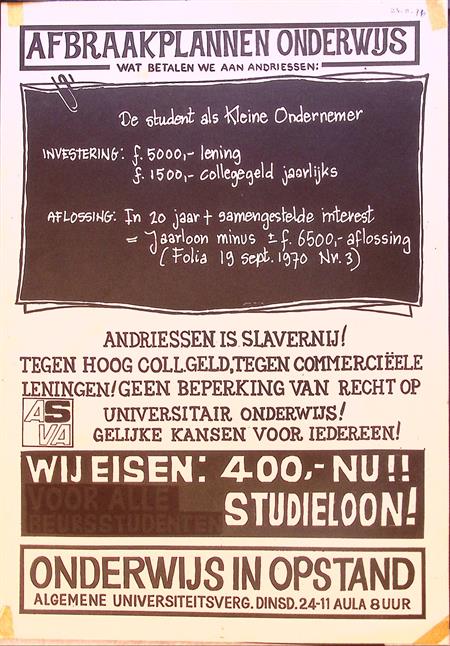 AFBRAAKPLANNEN ONDERWIJS
WAT BETALEN WE AAN ANDRIESSEN:
De student als Kleine Ondernemer
INVESTERING: f. 5000,- lening
f. 1500,- collegegeld jaarlijks
AFLOSSING: In 20 jaar + samengestelde interest
= Jaarloon minus ± f. 6500,- aflossing
(Folia 19 sept. 1970 Nr. 3)
ANDRIESSEN IS SLAVERNIJ!
TEGEN HOOG COLL.GELD, TEGEN COMMERCIËELE
LENINGEN! GEEN BEPERKING VAN RECHT OP
UNIVERSITAIR ONDERWIJS!
GELIJKE KANSEN VOOR IEDEREEN!
ASVA
WIJ EISEN: 400,- NU!!
VOOR ALLE
BEURSSTUDENTEN
STUDIELOON!
ONDERWIJS IN OPSTAND
ALGEMENE UNIVERSITEITSVERG. DINSD. 24-11 AULA 8 UUR